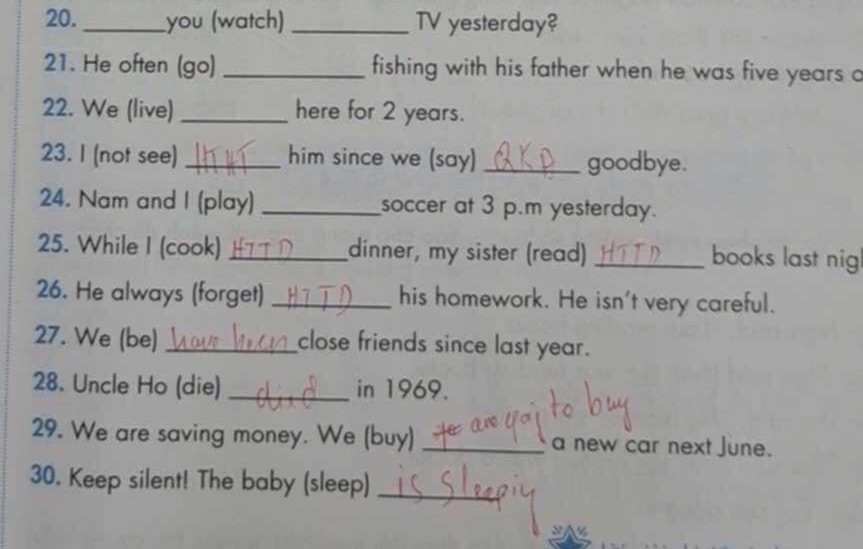 20. ______you (watch) ______ TV yesterday?
21. He often (go) ______ fishing with his father when he was five years o
22. We (live) ______ here for 2 years.
23. I (not see) HTHT him since we (say) QKD goodbye.
24. Nam and I (play) ______soccer at 3 p.m yesterday.
25. While I (cook) HTTD dinner, my sister (read) HTTD books last nigh
26. He always (forget) HTTD his homework. He isn't very careful.
27. We (be) have been close friends since last year.
28. Uncle Ho (die) died in 1969.
29. We are saving money. We (buy) are goi to buy a new car next June.
30. Keep silent! The baby (sleep) is sleepig